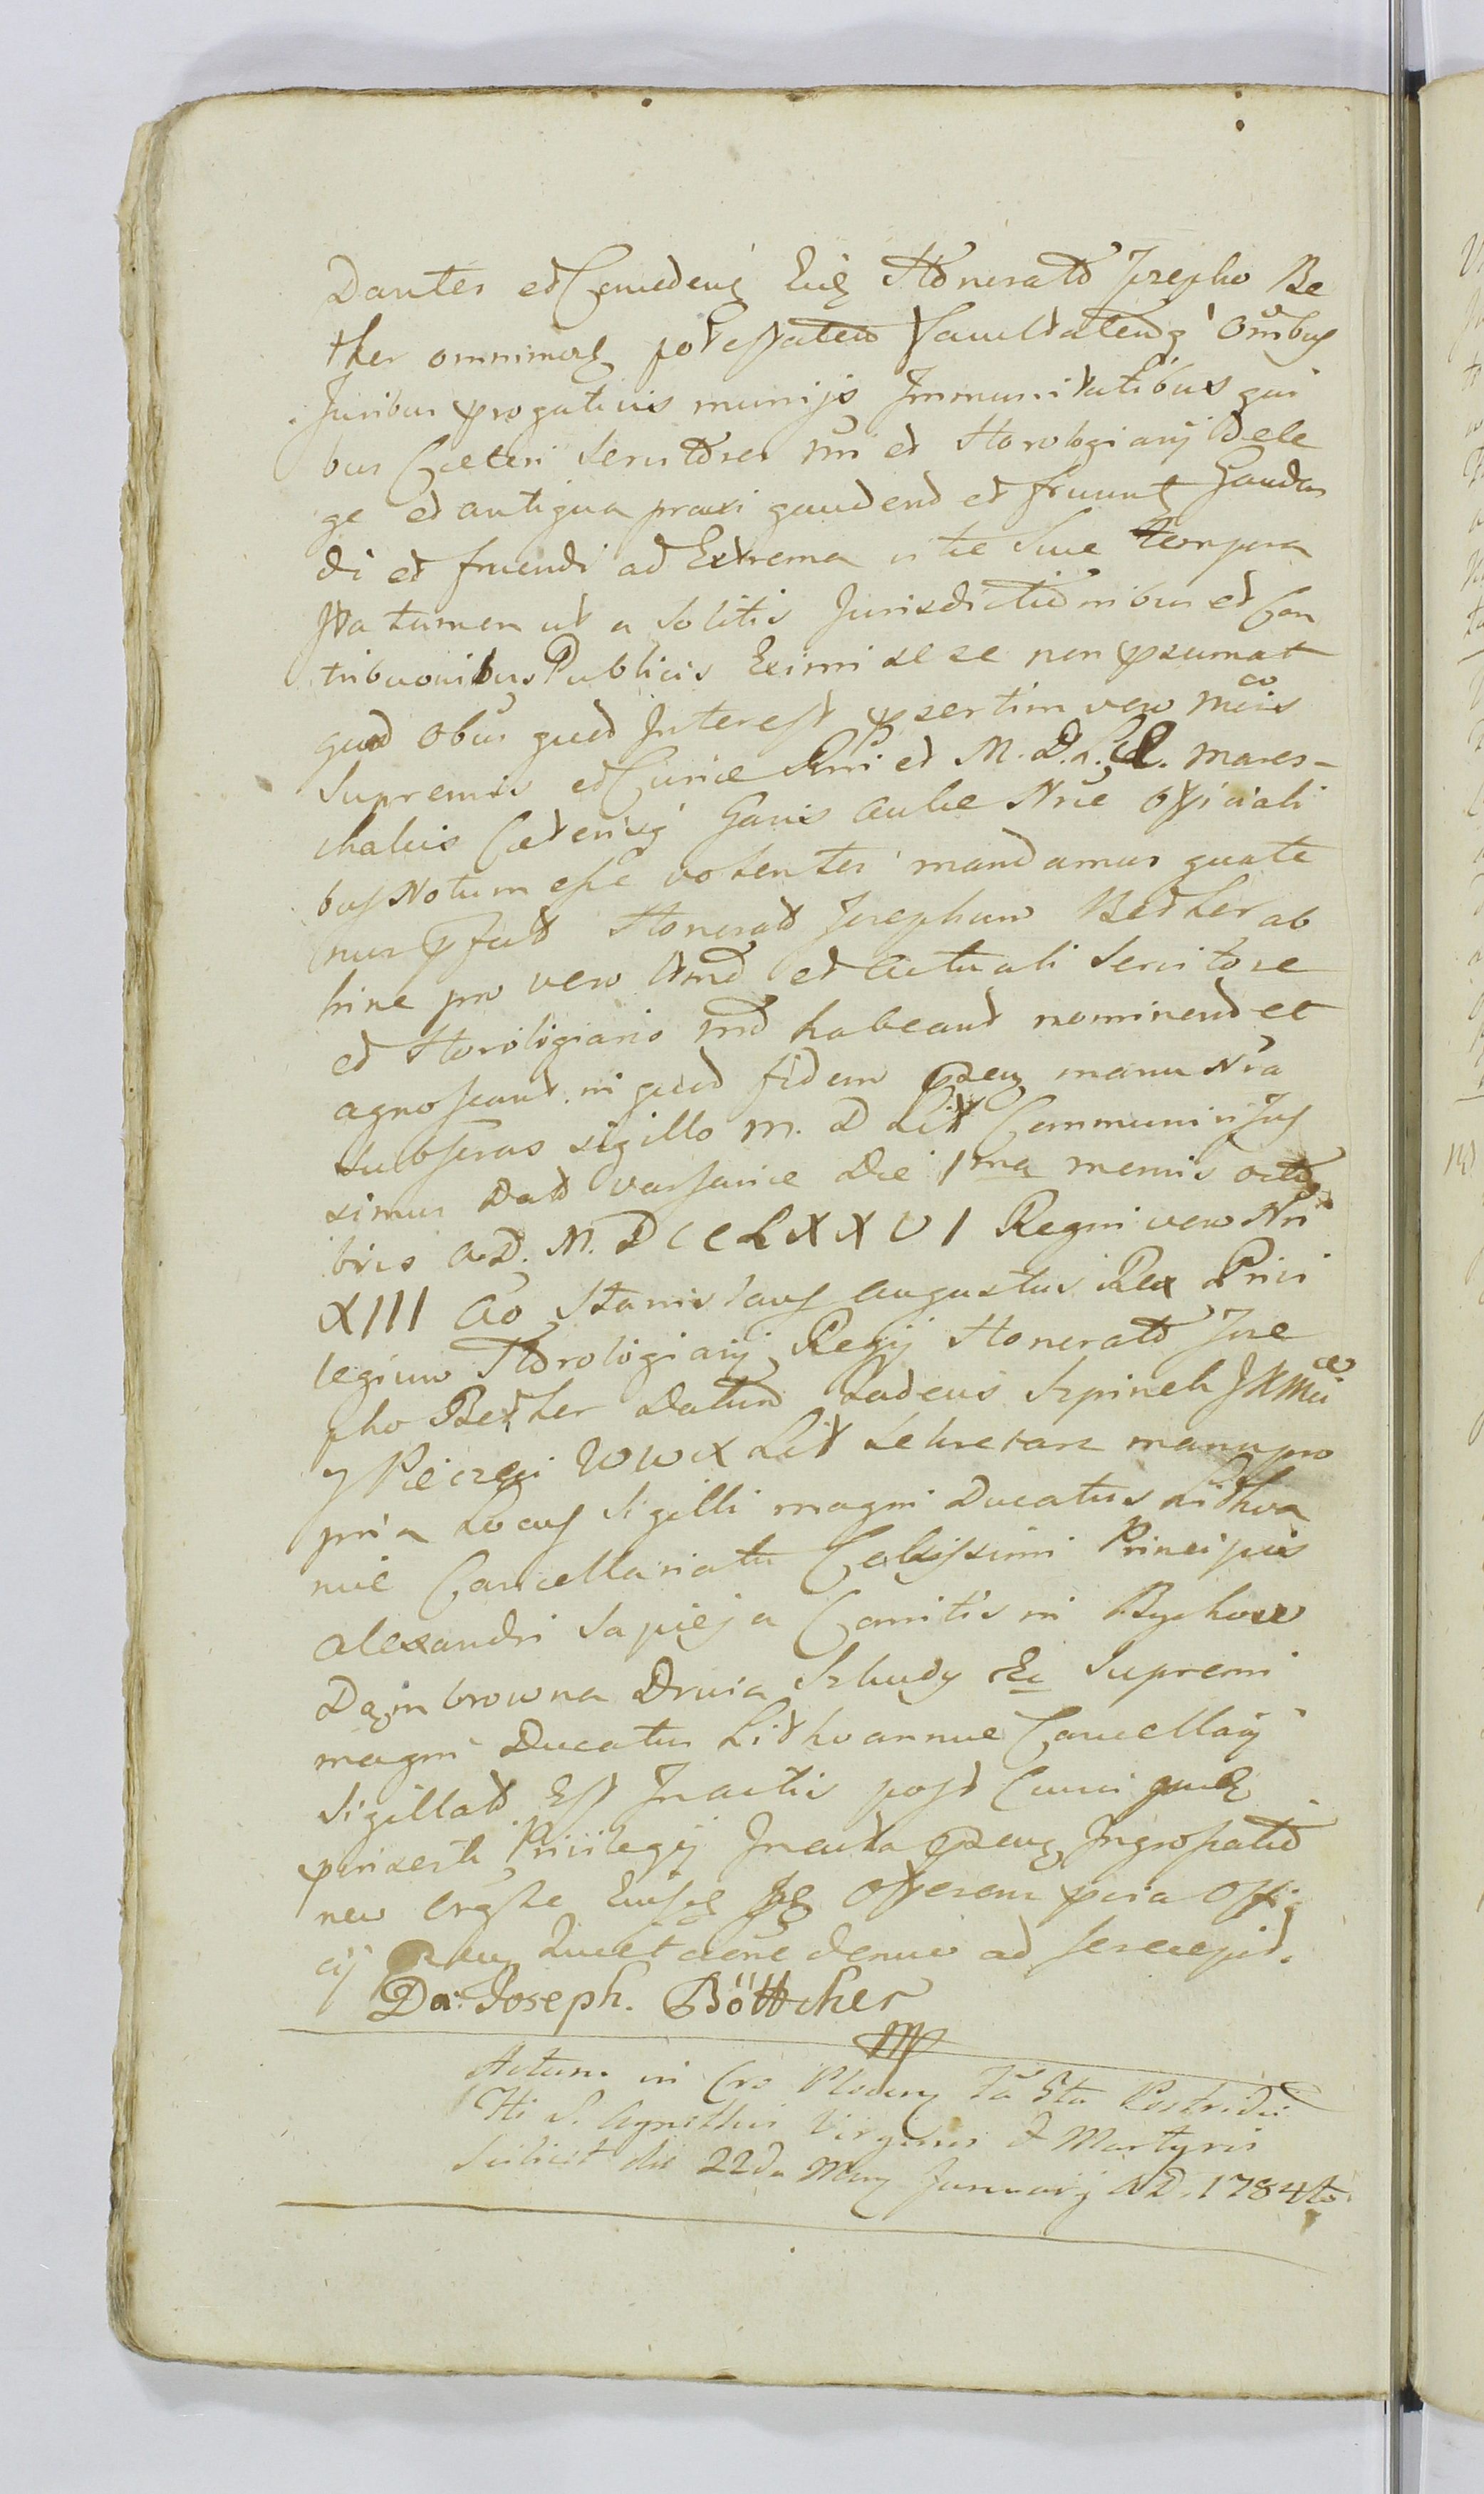 Dantes et Concedens Eidem Honorato Josepho Be
ther omnimod potestatem facultatemq Omibus
Juribus progativis munijs Immunitatibus qui
bus Caeteri Servitores nri et Horologiarij de le
ge et antiqua praxi gaudent et fruunt Gauden
di et fruendi ad Extrema vitae suae tempora
Ita tamen ut a Solitis Jurisdictionibus et Con
tribuonibus Publicis Eximi sese non psumat
quod Obus quod Interest psertim vero Mcis
Supremis et Curiae Rni et M. D. L. Mares-
chalcis Caeterisq Gnris aulae Nrae officiali
bus Notum esse volentes mandamus quate
nus pfat Honorat Josephum Bether ab
hinc pro vero nro et actuali Servitore
et Horologiario nro habeant nominent et
agnoscant. in quod fidem psen manu Nra
subscras sigillo M. D Lit Communiri Jus
simus Dat varsaviae Die 1ma mensis octo
bris A.D. M. D C C L X X V I Regni vero Nri
XIII Ao Stanislaus augustus Rex Privi
legium Horologiarij Regij Honorato Jose
pho Bether Datum Tadeus Szpinek JKMci
y Pieczęci WWX Lit Sekretarz manu pro
pria Locus Sigilli magni Ducatus Lithva
niae Cancellariatu Celsissimi Principis
Alexandri Sapieja Comitis in Bychow
Dąmbrowna Druia Szkudy Ec Supremi
magni Ducatus Lithvanniae Cancellarij
Sigillat Est In actis post Cuius quidem
pinserti Privilegij In acta psen Ingrossatio
nem Orgle Eiusd Idem Offerens pria Offi
cij psen Quietaone denuo ad se recepit.
Da: Joseph. Böttcher
mp
Actum in Cro Plocen Fa 5ta Postridie
Fti S. Agnethis Virginis & Martyris
Scilicet die 22da Mens Januarij A.D. 1784to